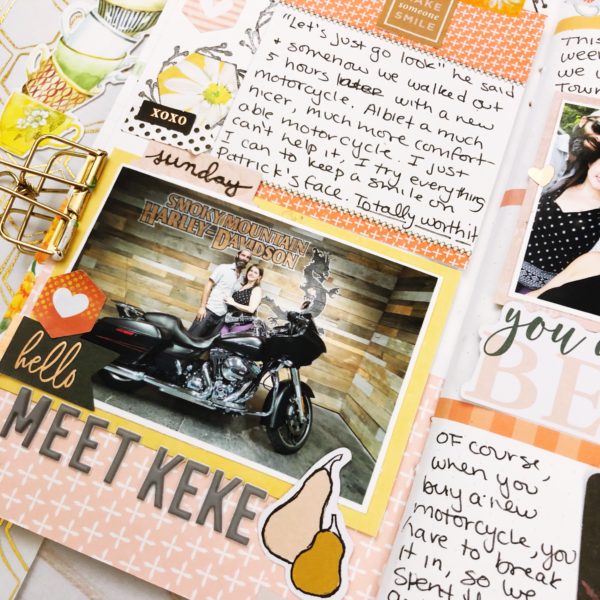 AKE
someone
SMILE
"Let's just go look" he said
+ somehow we walked out
5 hours later with a new
motorcycle. Albiet a much
nicer, much more comfort-
able motorcycle. I just
can't help it, I try everything
I can to keep a smile on
Patrick's face. Totally worth it
XOXO
sunday
SMOKY MOUNTAIN
HARLEY-DAVIDSON
hello
MEET KEKE
This
wee
we
Tour
you
BE
of course,
when you
buy a new
motorcycle, you
have to break
it in, so we
Spent